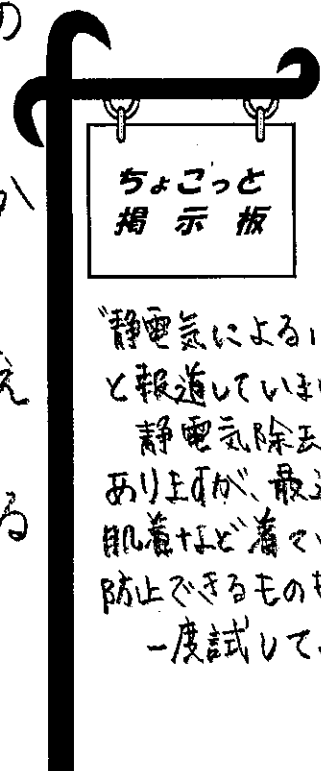 の
か
え
る
ちょこっと
掲示板
"静電気による
と報道していま
静電気除去
ありますが、最近
肌着など着てい
防止できるものも
一度試して